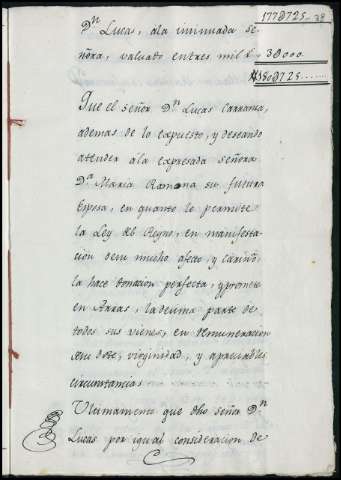 177Ø725.. 38
Dn. Lucas, ála insinuada Se-
ñora, valuado entres mil r.s 3Ø000
180Ø725......
Que el señor Dn. Lucas Carrama,
ademas de lo expuesto, y deseando
atender ála expresada señora
D.a Maria Ramona su futura
Esposa, en quanto lo permite
la Ley del Reyno, en manifesta-
cion desu mucho afecto, y cariño,
la hace donacion perfecta, y promete
en Arras, la decima parte de-
todos sus vienes, en remuneracion
desu dote, virginidad, y apreciables
circunstancias.
Ultimamente que dho señor Dn.
Lucas por igual consideracion de